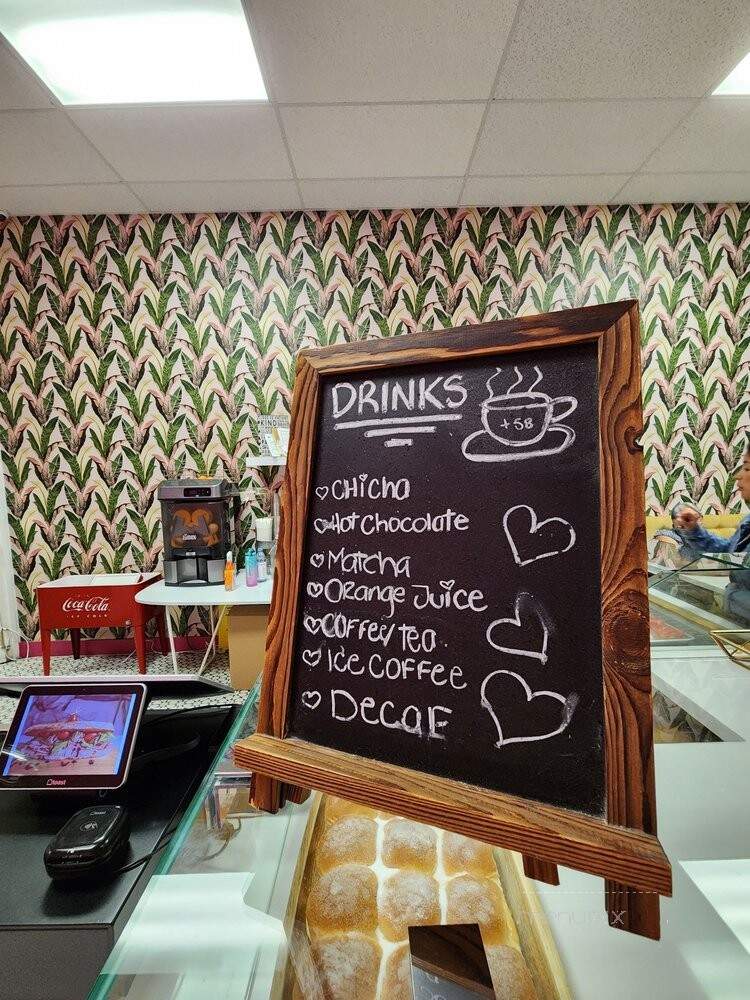 DRINKS
+58
CHicha
Hot Chocolate
Matcha
Orange Juice
COFFee/ Tea
ICe COFFEE
DecaF
Coca-Cola
ICE COLD
toast
KIND
menupix